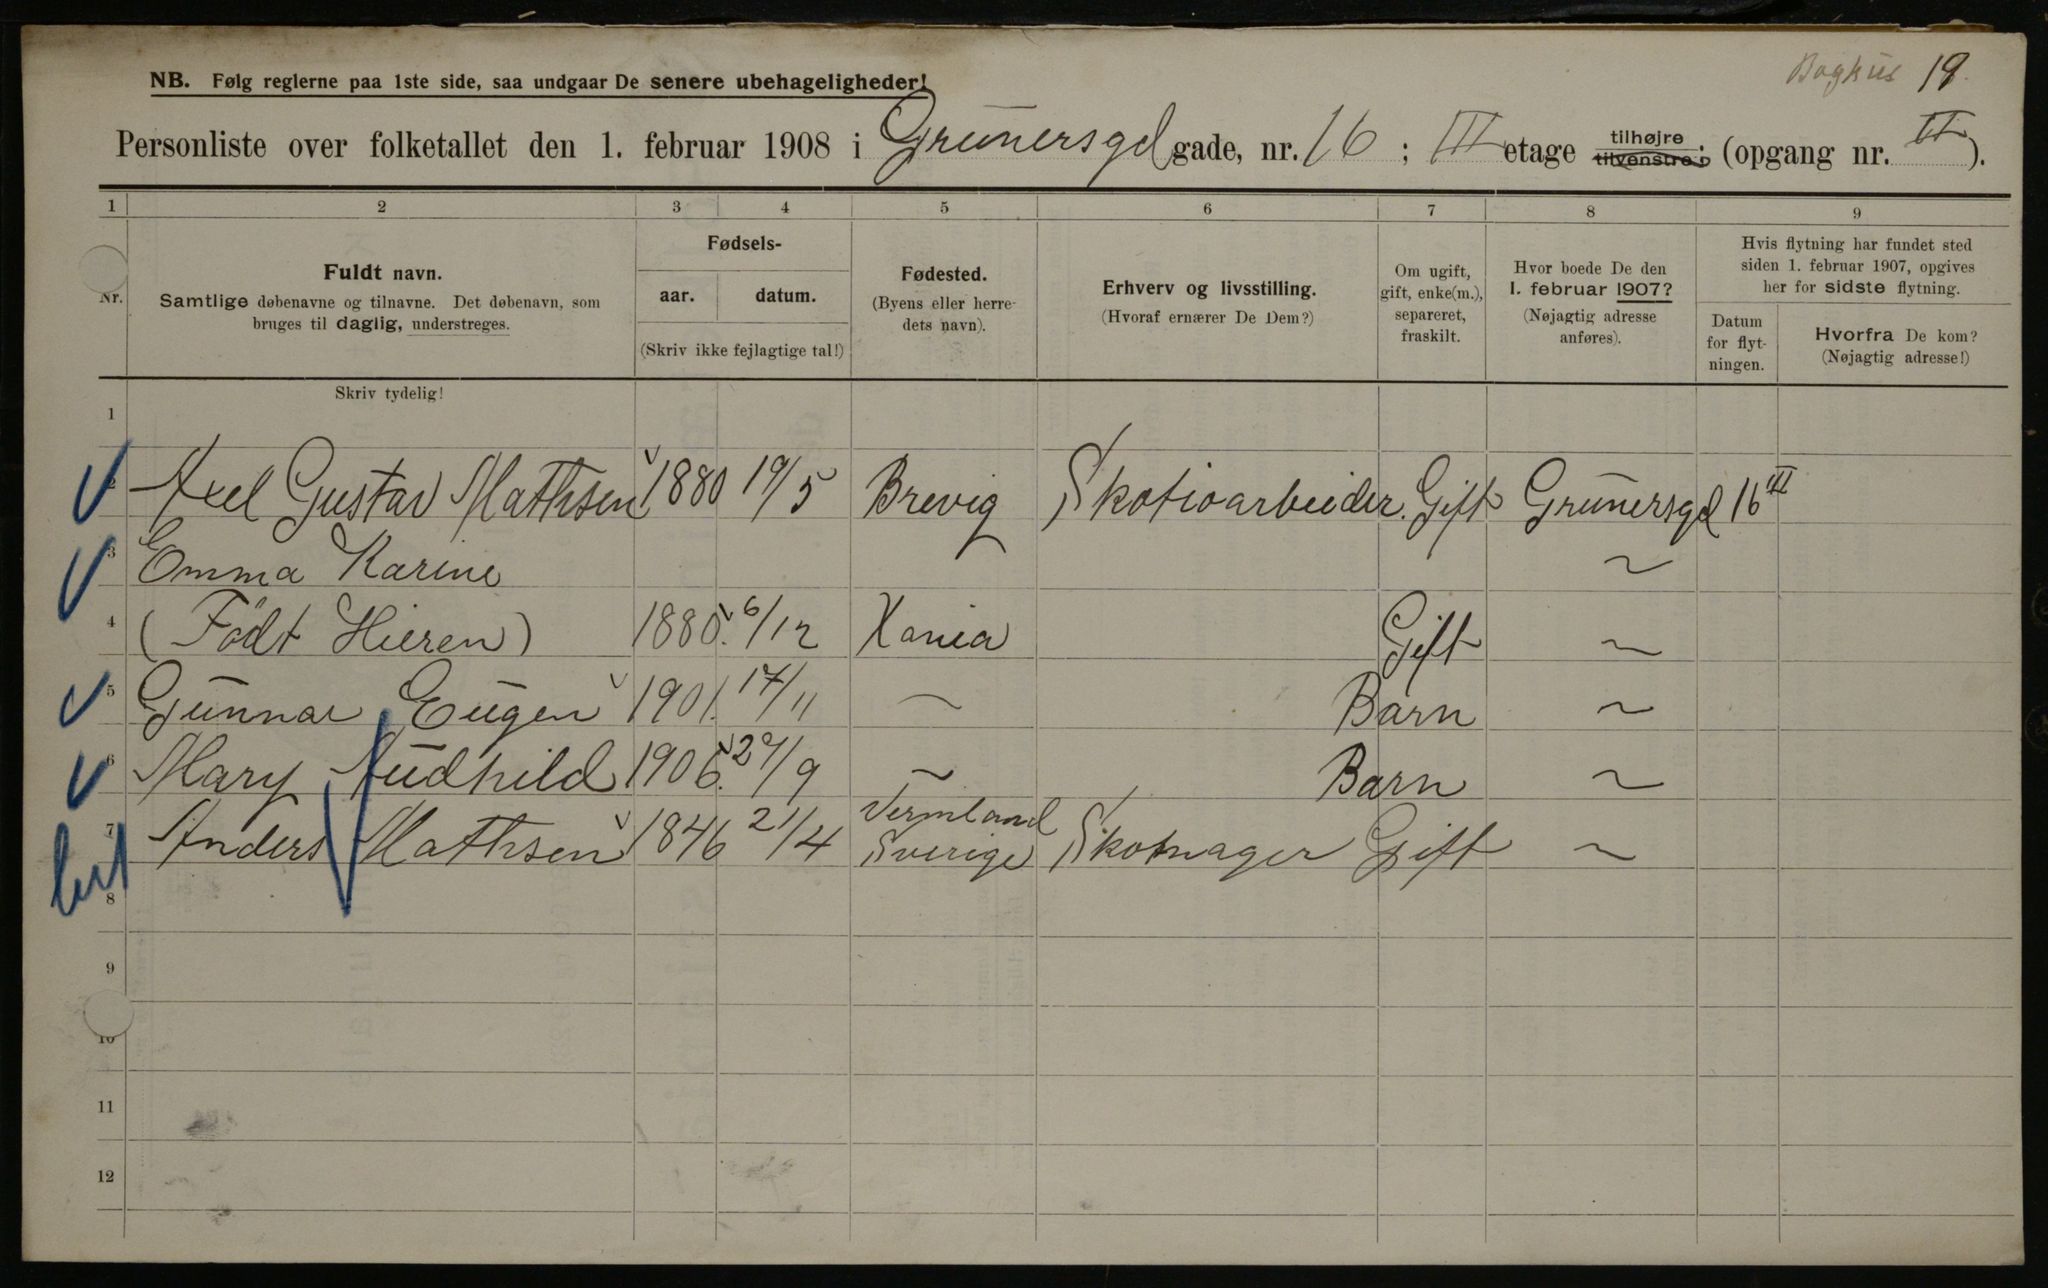 Baghus 19.
NB. Følg reglerne paa 1ste side, saa undgaar De senere ubehageligheder!
Personliste over folketallet den 1. februar 1908 i Grünersgd gade, nr. 16 ; III etage tilhøjre tilvenstre ; (opgang nr. II ).
1 2 3 4 5 6 7 8 9
Nr.
Fuldt navn.
Samtlige døbenavne og tilnavne. Det døbenavn, som
bruges til daglig, understreges.
Fødsels-
aar. datum.
(Skriv ikke fejlagtige tal!)
Fødested.
(Byens eller herre-
dets navn).
Erhverv og livsstilling.
(Hvoraf ernærer De Dem?)
Om ugift,
gift, enke(m.),
separeret,
fraskilt.
Hvor boede De den
1. februar 1907?
(Nøjagtig adresse
anføres).
Hvis flytning har fundet sted
siden 1. februar 1907, opgives
her for sidste flytning.
Datum
for flyt-
ningen.
Hvorfra De kom?
(Nøjagtig adresse!)
Skriv tydelig!
1
2 Axel Gustav Mathsen 1880 19/5 Brevig Skotioarbeider. Gift Grünersgd 16 III
3 Emma Karine ~
4 (Födt Hieren) 1880. 6/12 Xania Gift ~
5 Günnar Eügen 1901. 17/11 ~ Barn ~
6 Mary Aüdhild 1906. 29/9 ~ Barn ~
7 Anders Mathsen 1846 21/4 Vermland Sverige Skomager Gift ~
8
9
10
11
12